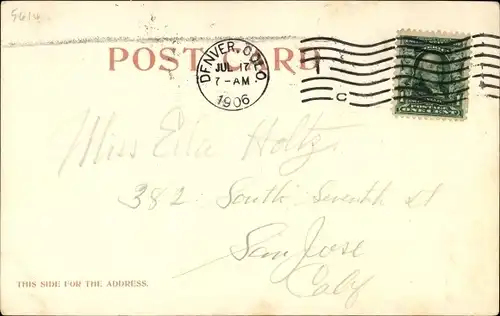 5614
POST CARD
DENVER, COLO.
JUL 17
7-AM
1906
C
POSTAGE
ONE CENT
Miss Ella Holtz
382 South Seventh St
San Jose
Calf
THIS SIDE FOR THE ADDRESS.